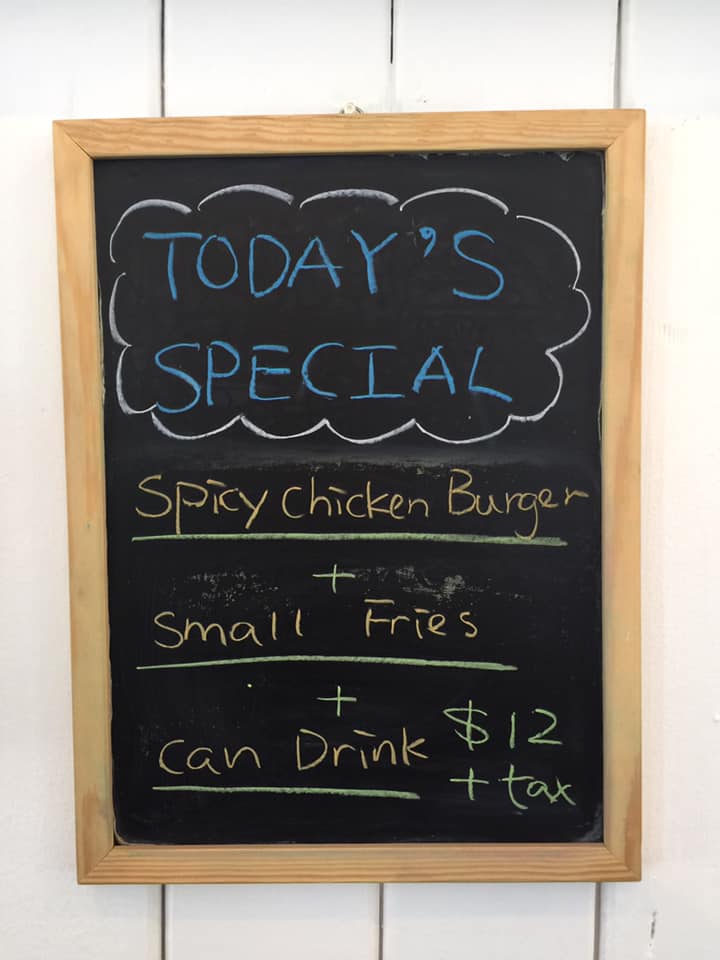 TODAY'S
SPECIAL
Spicy Chicken Burger
+
Small Fries
+
Can Drink $12
+ tax